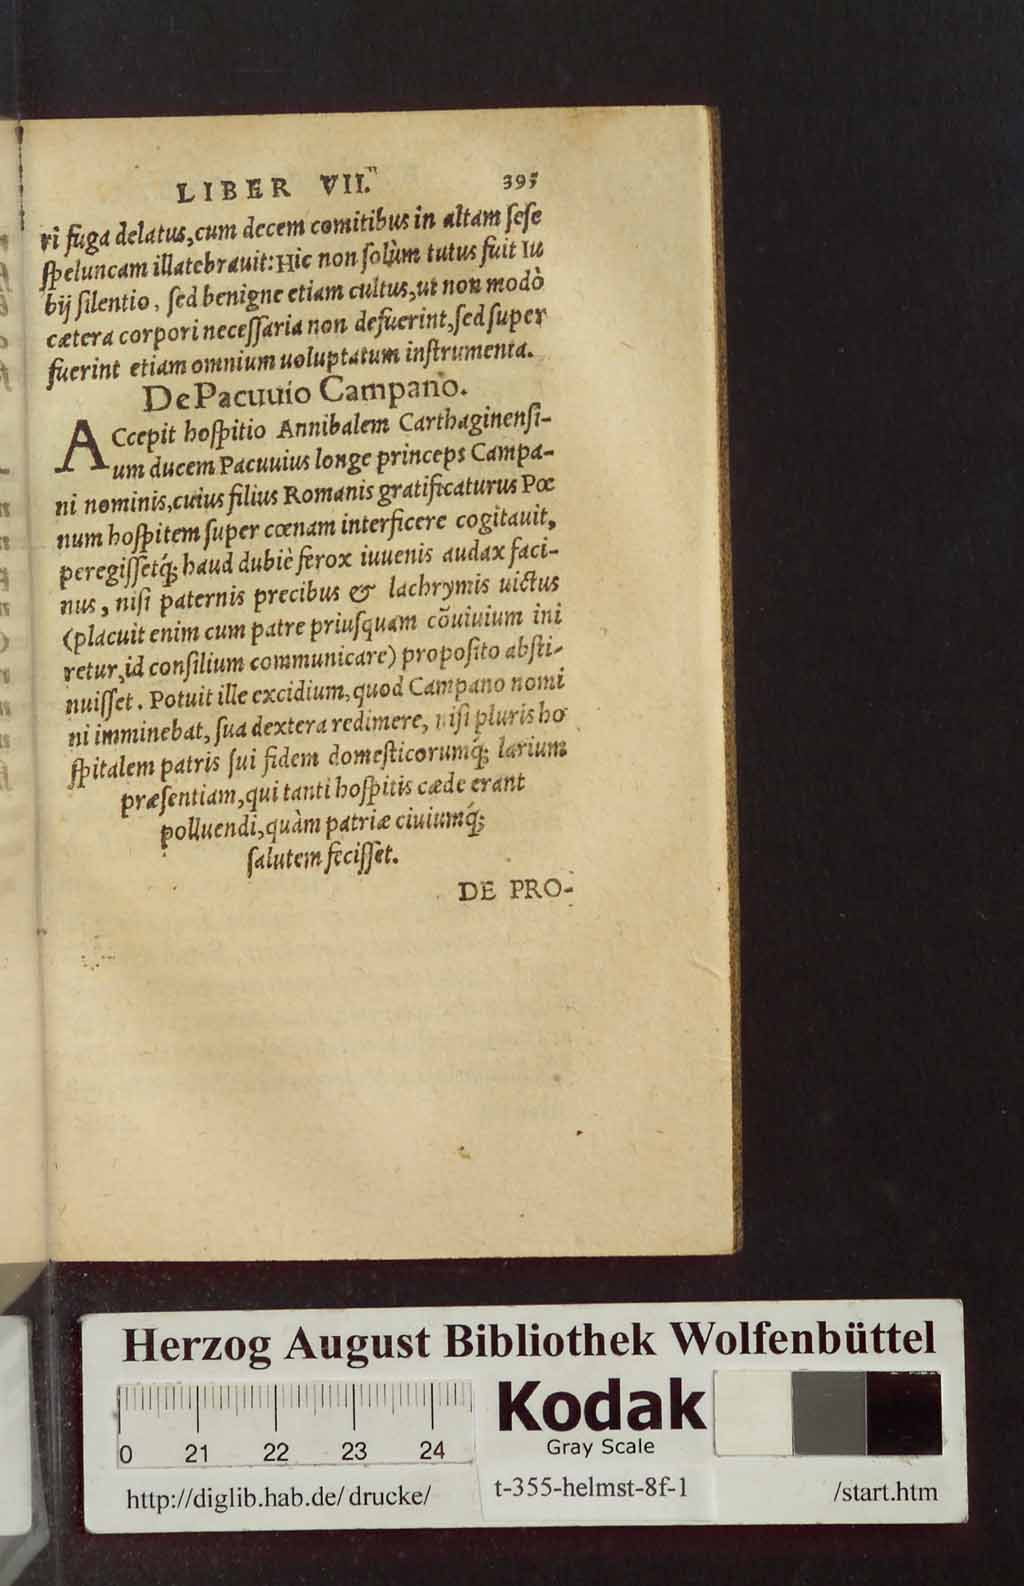 LIBER VII. 395
ri fuga delatus, cum decem comitibus in altam sese
speluncam illatebrauit: Hic non solùm tutus fuit Iu
bij silentio, sed benigne etiam cultus, ut non modò
cætera corpori necessaria non defuerint, sed super
fuerint etiam omnium uoluptatum instrumenta.
De Pacuuio Campano.
ACcepit hospitio Annibalem Carthaginensi-
um ducem Pacuuius longe princeps Campa-
ni nominis, cuius filius Romanis gratificaturus Pœ
num hospitem super cœnam interficere cogitauit,
peregissetq́; haud dubiè ferox iuuenis audax faci-
nus, nisi paternis precibus & lachrymis uictus
(placuit enim cum patre priusquam cõuiuium ini
retur, id consilium communicare) proposito absti-
nuisset. Potuit ille excidium, quod Campano nomi
ni imminebat, sua dextera redimere, nisi pluris ho
spitalem patris sui fidem domesticorumq́; larium
præsentiam, qui tanti hospitis cæde erant
polluendi, quàm patriæ ciuiumq́;
salutem fecisset.
DE PRO-
Herzog August Bibliothek Wolfenbüttel
0 21 22 23 24
Kodak
Gray Scale
http://diglib.hab.de/drucke/ t-355-helmst-8f-1 /start.htm